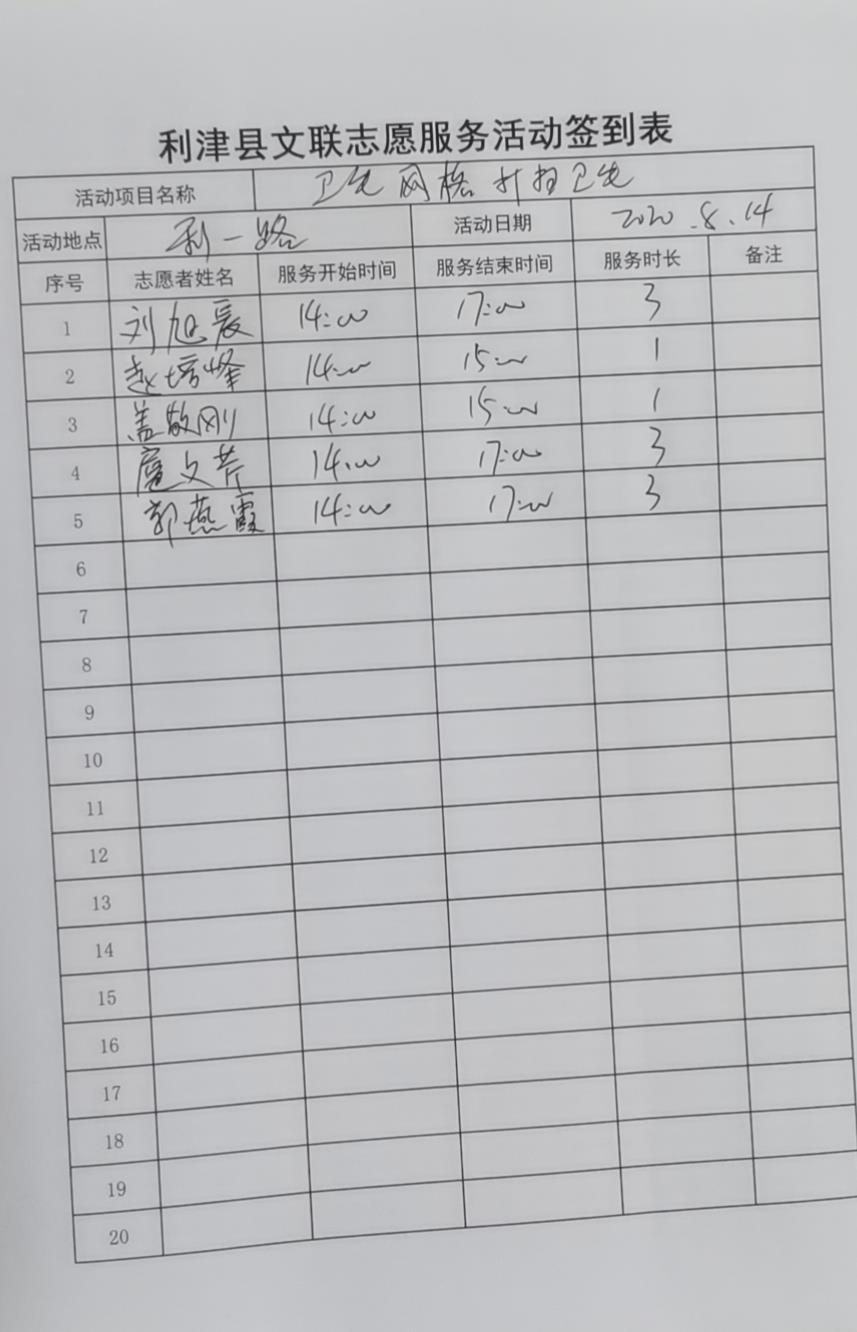 利津县文联志愿服务活动签到表
活动项目名称 卫生网格打扫卫生
活动地点 利一路 活动日期 2020.8.14
序号 志愿者姓名 服务开始时间 服务结束时间 服务时长 备注
1 刘旭晨 14:00 17:00 3
2 赵培峰 14:00 15:00 1
3 盖敬刚 14:00 15:00 1
4 扈文芹 14:00 17:00 3
5 郭燕霞 14:00 17:00 3
6
7
8
9
10
11
12
13
14
15
16
17
18
19
20